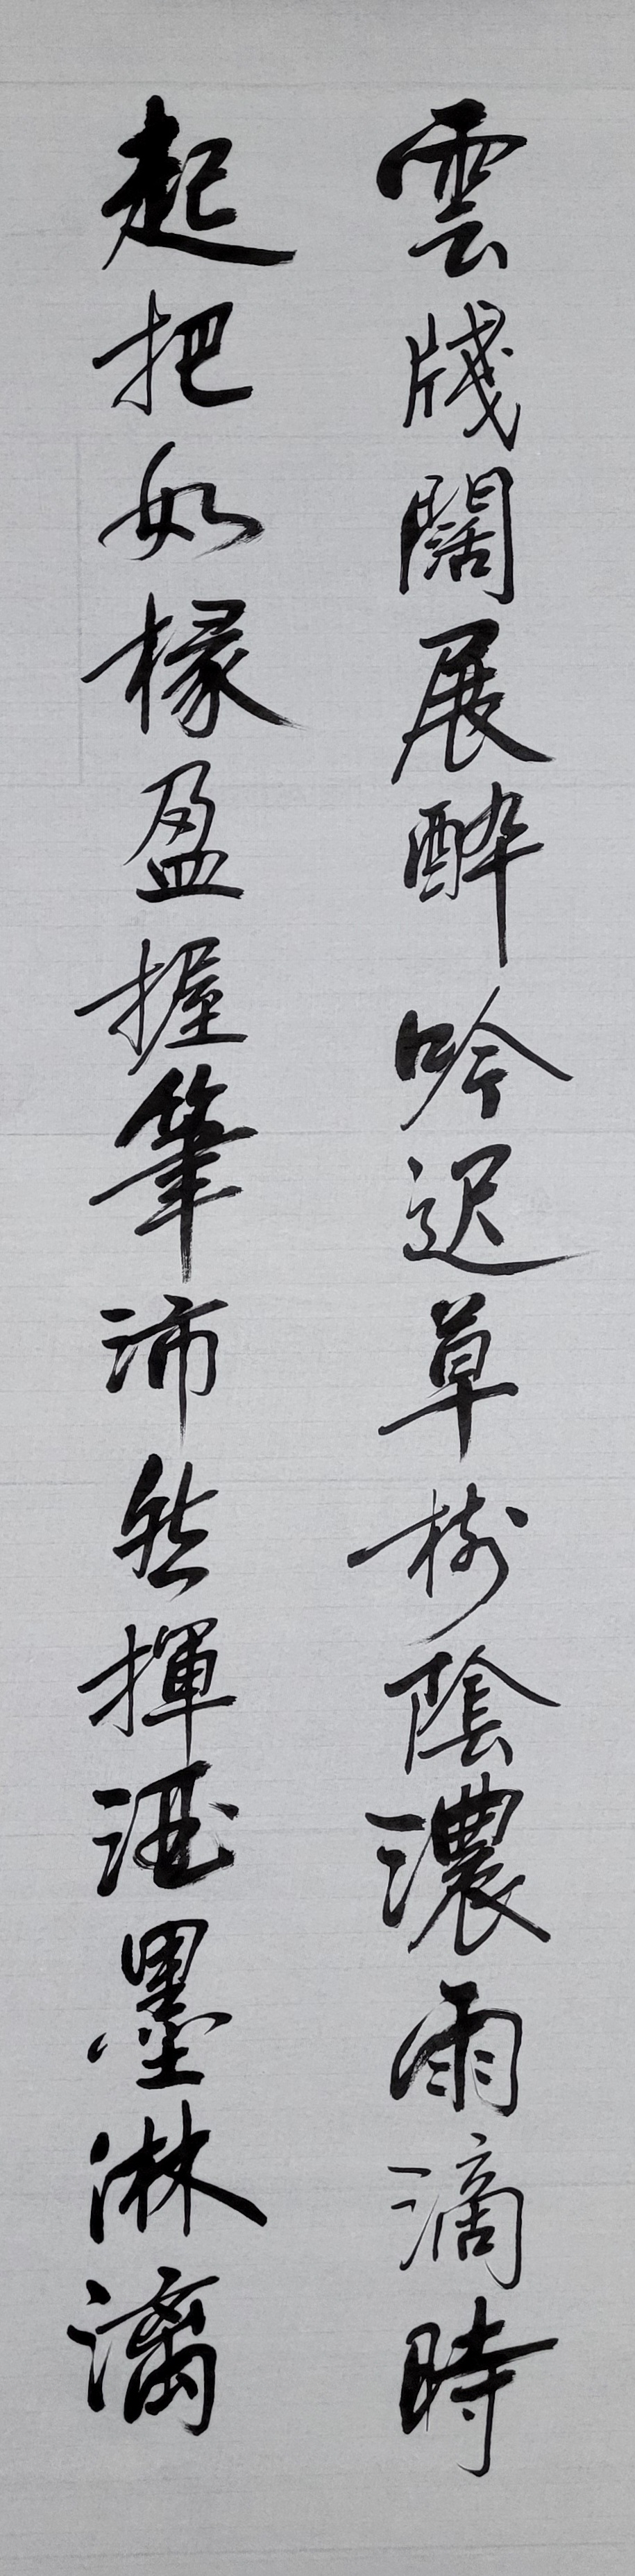 雲牋闊展醉吟迟草樹陰濃雨滴時
起把如椽盈握筆沛然揮洒墨淋漓